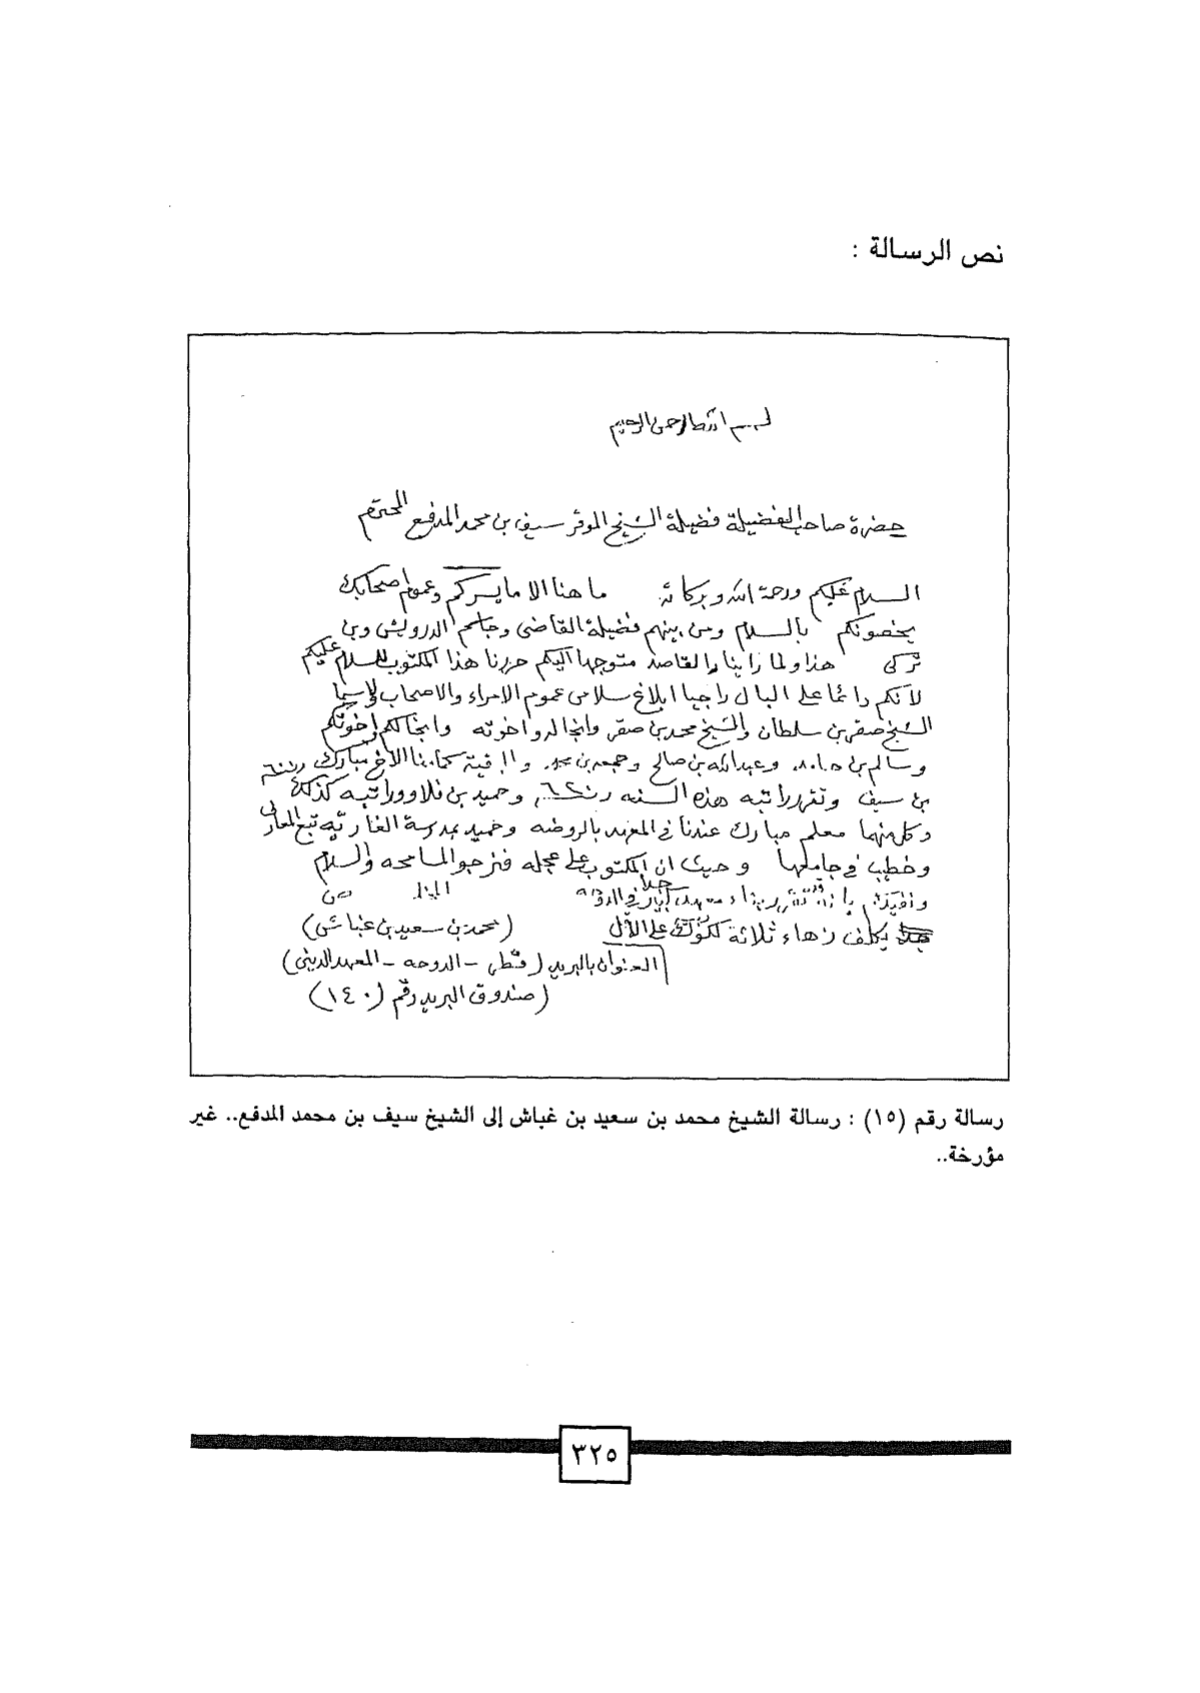 نص الرسالة :
بسم الله الرحمن الرحيم
حضرة صاحب الفضيلة فضيلة الشيخ الموقر سيف بن محمد المدفع المحترم
السلام عليكم ورحمة الله وبركاته ما هنا الا ما يسركم وعموم اصحابك
يخصونكم بالسلام ومن بينهم فضيلة القاضي وجاسم الدرويش وبن
تركي هذا ولما رأينا القاصد متوجها اليكم حررنا هذا المكتوب للسلام عليكم
لأنكم دائما على البال راجيا ابلاغ سلامي عموم الامراء والاصحاب ولاسيما
الشيخ صقر بن سلطان والشيخ محمد بن صقر وانجاله واخوته وانجالكم واخوتكم
وسالم بن وعبدالله بن صالح وجمعه بن محمد كما الأخ مبارك
بن سيف وتقرر راتبه هذه السنه وحميد بن فلاو وراتبه كذلك
وكل منهما معلم مبارك عندنا في المعهد بالروضه وحميد بمدرسة الغاريه تبع المعارف
وخطيب في جامعها وحيث ان المكتوب على عجله فنرجو المسامحه والسلام
بناء معهد في الدوحه
يكلف زهاء ثلاثة على الأقل (محمد بن سعيد بن غباش)
العنوان بالبريد (قطر - الدوحه - المعهد الديني)
(صندوق البريد رقم (١٤٠)
رسالة رقم (١٥) : رسالة الشيخ محمد بن سعيد بن غباش إلى الشيخ سيف بن محمد المدفع.. غير
مؤرخة..
٣٢٥